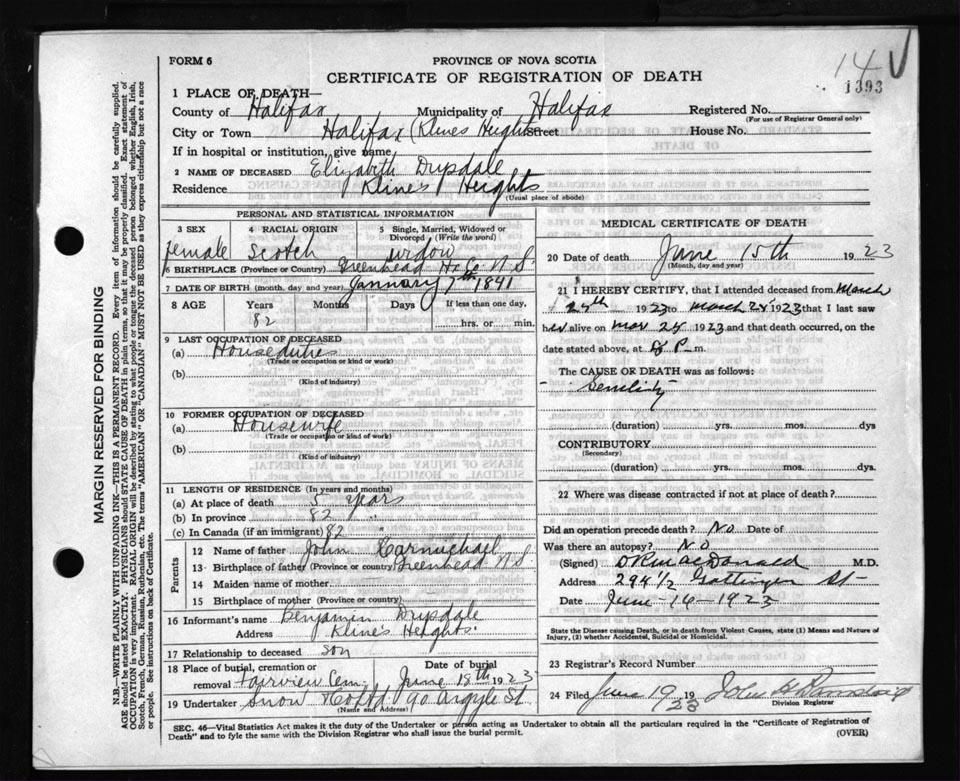 FORM 6
PROVINCE OF NOVA SCOTIA
CERTIFICATE OF REGISTRATION OF DEATH
14 V
1393
1 PLACE OF DEATH—
County of Halifax Municipality of Halifax Registered No.
(For use of Registrar General only)
City or Town Halifax (Klines Heights Street House No.
If in hospital or institution, give name
2 NAME OF DECEASED Elizabeth Drysdale
Residence Kline's Heights
(Usual place of abode)
PERSONAL AND STATISTICAL INFORMATION
3 SEX 4 RACIAL ORIGIN 5 Single, Married, Widowed or Divorced (Write the word)
female Scotch widow
6 BIRTHPLACE (Province or Country) Greenhead Hx Co N.S.
7 DATE OF BIRTH (month, day and year) January 7th 1841
8 AGE Years Months Days If less than one day,
82 hrs. or min.
9 LAST OCCUPATION OF DECEASED
(a) Houseduties
(Trade or occupation or kind or work)
(b)
(Kind of industry)
10 FORMER OCCUPATION OF DECEASED
(a) Housewife
(Trade or occupation or kind of work)
(b)
(Kind of industry)
11 LENGTH OF RESIDENCE (In years and months)
(a) At place of death 5 years
(b) In province 82 "
(c) In Canada (if an immigrant) 82 "
Parents
12 Name of father John Carmichael
13 Birthplace of father (Province or country) Greenhead N.S.
14 Maiden name of mother
15 Birthplace of mother (Province or country)
16 Informant's name Benjamin Drysdale
Address Kline's Heights
17 Relationship to deceased son
18 Place of burial, cremation or removal Fairview Cem. Date of burial June 18th 1923
19 Undertaker Snow & Co Ltd 90 Argyle St
(Name and Address)
MEDICAL CERTIFICATE OF DEATH
20 Date of death June 15th 1923
(Month, day and year)
21 I HEREBY CERTIFY, that I attended deceased from March
24th 1923 to March 24 1923 that I last saw
her alive on Mar 24 1923 and that death occurred, on the
date stated above, at 8 P m.
The CAUSE OF DEATH was as follows:
Senility
(duration) yrs. mos. dys
CONTRIBUTORY
(Secondary)
(duration) yrs. mos. dys.
22 Where was disease contracted if not at place of death?
Did an operation precede death? No Date of
Was there an autopsy? No
(Signed) D R MacDonald M.D.
Address 294½ Gottingen St
Date June-16-1923
State the Disease causing Death, or in death from Violent Causes, state (1) Means and Nature of
Injury, (2) whether Accidental, Suicidal or Homicidal.
23 Registrar's Record Number
24 Filed June 19 1923 John H
Division Registrar
SEC. 46—Vital Statistics Act makes it the duty of the Undertaker or person acting as Undertaker to obtain all the particulars required in the "Certificate of Registration of
Death" and to fyle the same with the Division Registrar who shall issue the burial permit.
(OVER)
MARGIN RESERVED FOR BINDING
N.B.—WRITE PLAINLY WITH UNFADING INK—THIS IS A PERMANENT RECORD. Every item of information should be carefully supplied.
AGE should be stated EXACTLY. PHYSICIANS should STATE CAUSE OF DEATH in plain terms, so that it may be properly classified. Exact statement of
OCCUPATION is very important. RACIAL ORIGIN will be described by stating to what people or tongue the deceased person belonged whether English, Irish,
Scotch, French, German, Russian, Ruthenian, etc. The terms "AMERICAN" or "CANADIAN" MUST NOT BE USED as they express citizenship but not a race
or people. See instructions on back of Certificate.